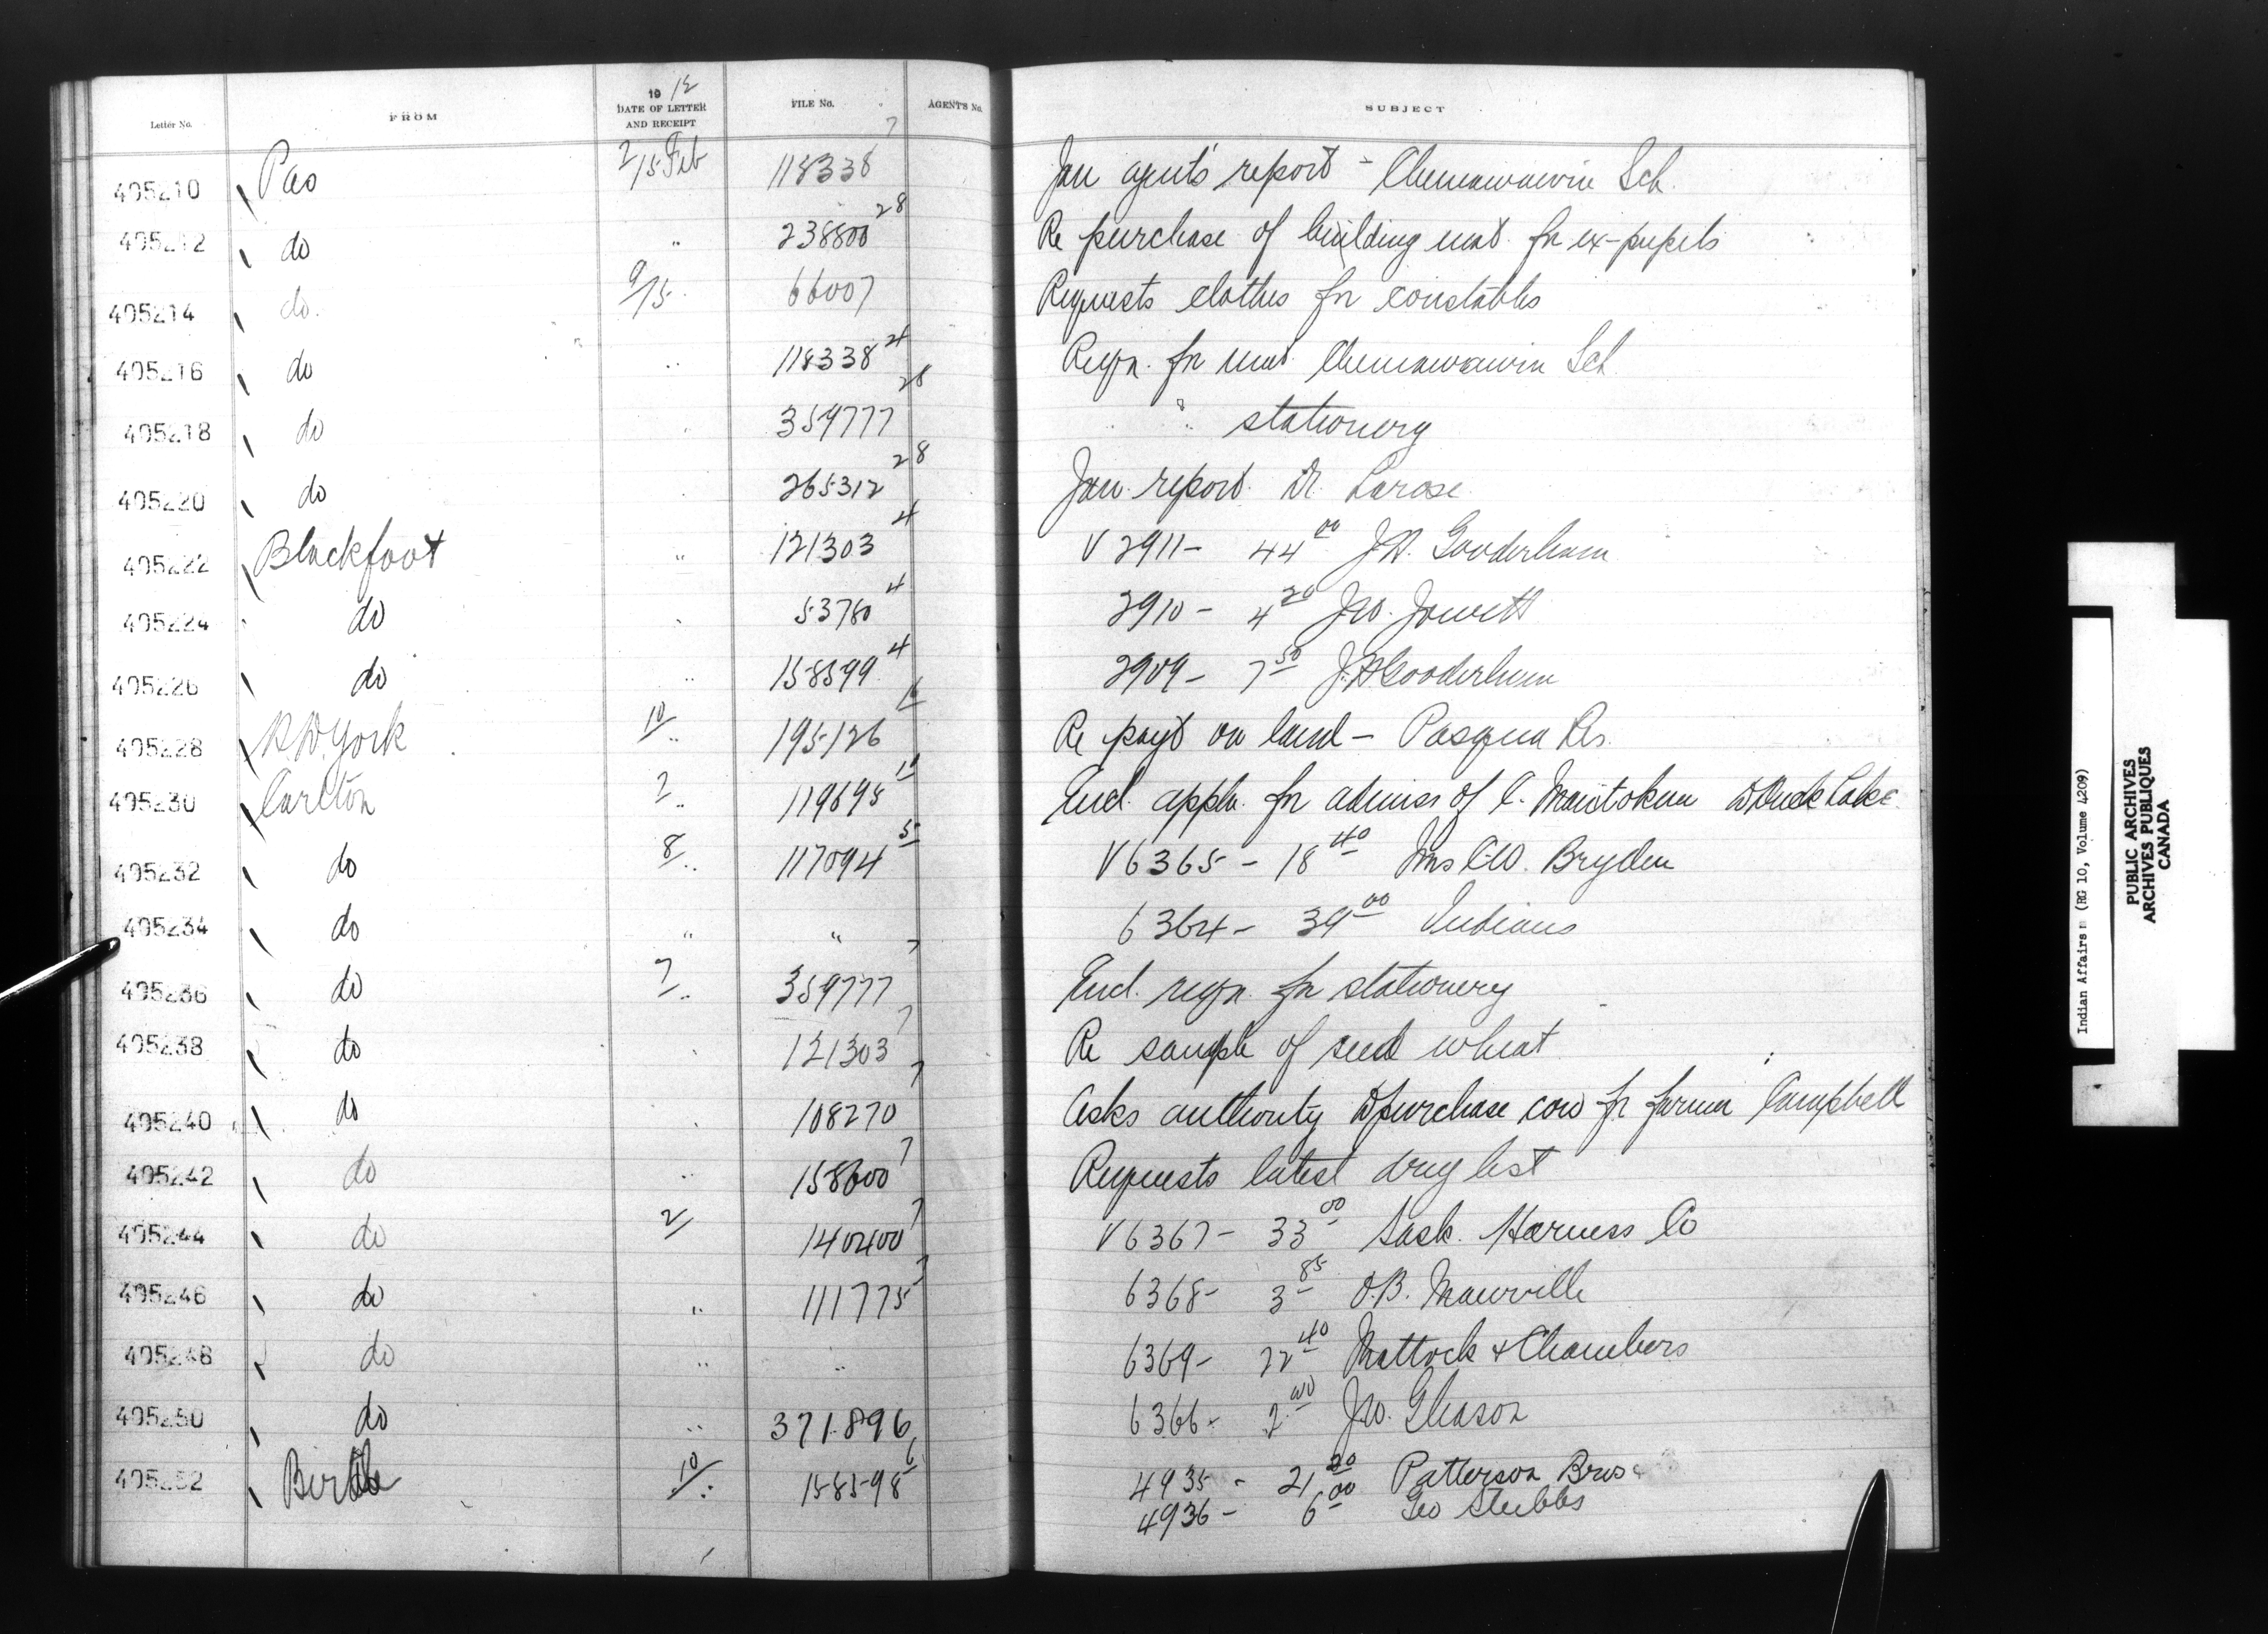 Letter No. FROM 19 12 DATE OF LETTER AND RECEIPT FILE No. AGENTS No. SUBJECT
7
405210 Pas 2/15 Feb 118338 Jan agent's report - Chemawawin Sch.
28
405212 do " 238800 Re purchase of building mat. for ex-pupils
405214 do. 9/15 66007 Requests clothes for constables
4
405216 do " 118338 Reqn. for mat. Chemawawin Sch
28
405218 do " 359777 " stationery
28
405220 do " 265312 Jan. report Dr. Larose
4
405222 Blackfoot " 121303 V 2911 - 44 00 J.H. Gooderham
4
405224 do " 53780 2910 - 4 20 Jno. Jowett
4
405226 do " 158599 2909 - 7 50 J.H. Gooderham
405228 R.W. York 10/" 195126 Re payt on land - Pasqua Rs.
405230 Carlton 2/" 119695 Encl. appln. for admiss of C. Manitoken to Duck Lake
5
405232 do 8/" 117094 V 6365 - 18 40 Mrs C.W. Bryden
405234 do " " 6364 - 39 00 Indians
7
405236 do 7/" 359777 Encl. reqn. for stationery
7
405238 do " 121303 Re sample of seed wheat
7
405240 do " 108270 Asks authority to purchase cow fr farmer Campbell
7
405242 do " 158600 Requests latest drug list
7
405244 do 2/ 140400 V 6367 - 33 00 Sask. Harness Co
7
405246 do " 111775 6368 - 3 85 O.B. Manville
405248 do " " 6369 - 22 40 Mattock & Chambers
405250 do " 371896 6366 - 2 00 Jno. Gleason
6
405252 Birtle 10/" 158598 4935 - 21 20 Patterson Bros
4936 - 6 00 Geo Stubbs
Indian Affairs (RG 10, Volume 4209)
PUBLIC ARCHIVES
ARCHIVES PUBLIQUES
CANADA